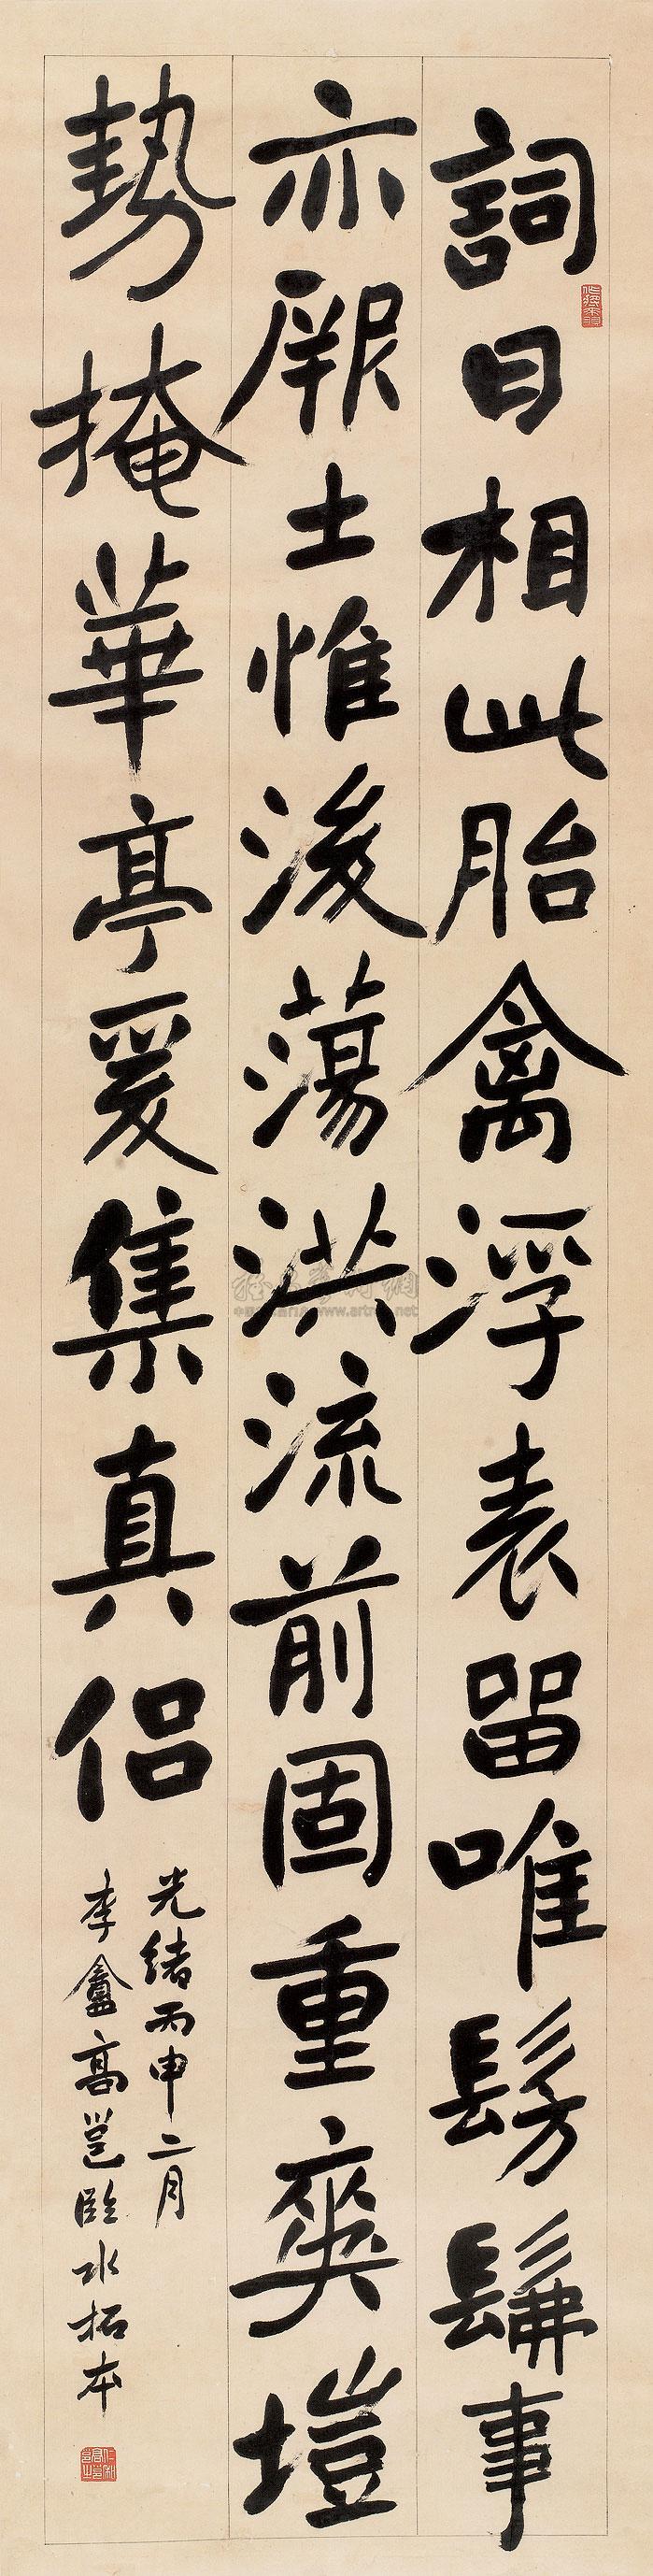 詞曰相此胎禽浮表留唯髣髴事
亦厥土惟後蕩洪流前固重爽塏
勢掩華亭爰集真侶
光緒丙申二月
李盦高邕臨水拓本